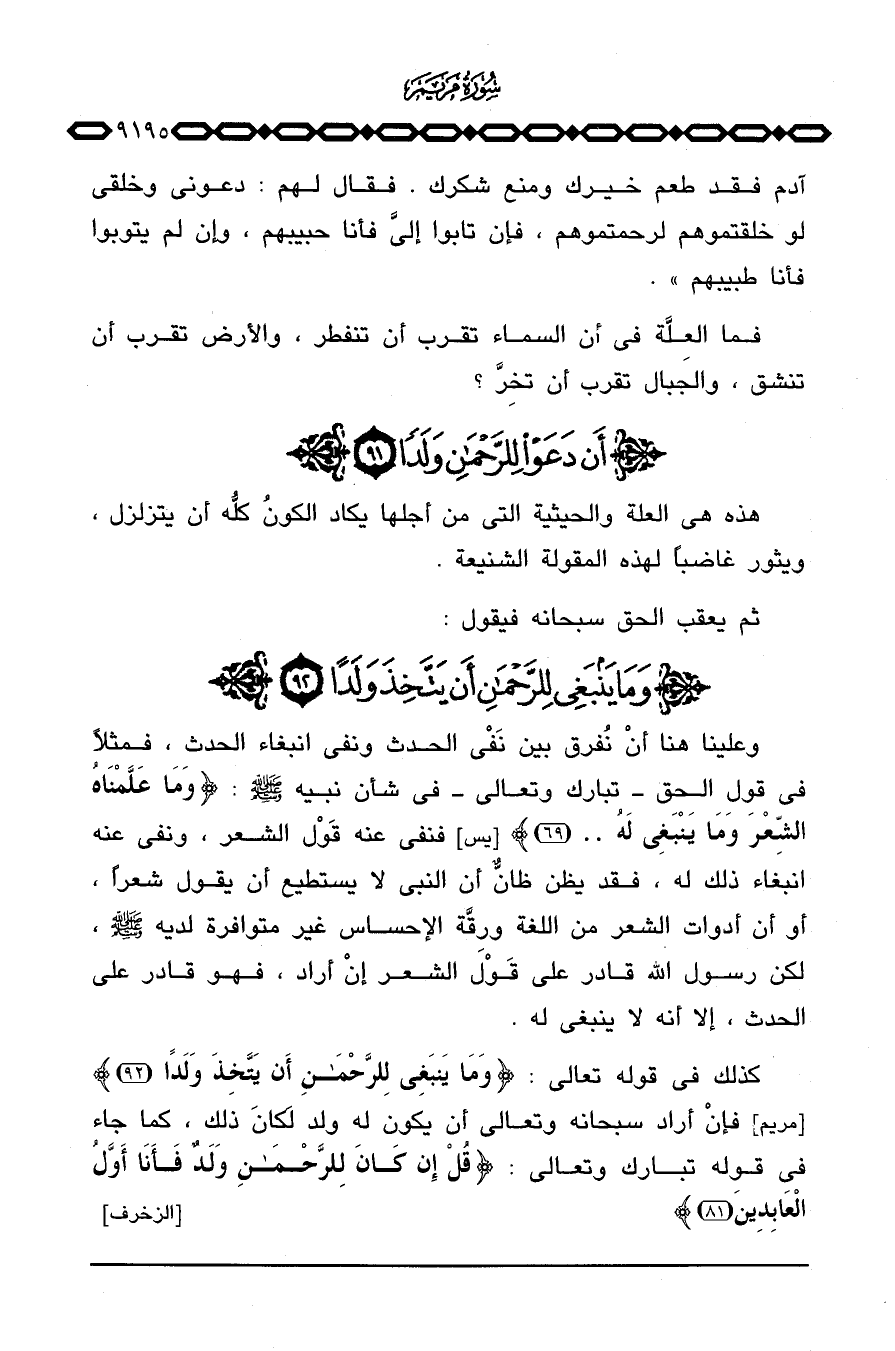 سُورَةُ مَرْيَمَ
٩١٩٥
آدم فقد طعم خيرك ومنع شكرك . فقال لهم : دعونى وخلقى
لو خلقتموهم لرحمتموهم ، فإن تابوا إلىَّ فأنا حبيبهم ، وإن لم يتوبوا
فأنا طبيبهم » .
فما العلَّة فى أن السماء تقرب أن تنفطر ، والأرض تقرب أن
تنشق ، والجبال تقرب أن تخرَّ ؟
أَن دَعَوْا۟ لِلرَّحْمَٰنِ وَلَدًا ٩١
هذه هى العلة والحيثية التى من أجلها يكاد الكونُ كلُّه أن يتزلزل ،
ويثور غاضباً لهذه المقولة الشنيعة .
ثم يعقب الحق سبحانه فيقول :
وَمَا يَنۢبَغِى لِلرَّحْمَٰنِ أَن يَتَّخِذَ وَلَدًا ٩٢
وعلينا هنا أنْ نُفرق بين نَفْى الحدث ونفى انبغاء الحدث ، فمثلاً
فى قول الحق - تبارك وتعالى - فى شأن نبيه ﷺ : ﴿وَمَا عَلَّمْنَاهُ
الشِّعْرَ وَمَا يَنْبَغِى لَهُ .. (٦٩)﴾ [يس] فنفى عنه قَوْل الشعر ، ونفى عنه
انبغاء ذلك له ، فقد يظن ظانٌّ أن النبى لا يستطيع أن يقول شعراً ،
أو أن أدوات الشعر من اللغة ورقَّة الإحساس غير متوافرة لديه ﷺ ،
لكن رسول الله قادر على قَوْل الشعر إنْ أراد ، فهو قادر على
الحدث ، إلا أنه لا ينبغى له .
كذلك فى قوله تعالى : ﴿وَمَا يَنبَغِى لِلرَّحْمَـٰنِ أَن يَتَّخِذَ وَلَدًا (٩٢)﴾
[مريم] فإنْ أراد سبحانه وتعالى أن يكون له ولد لَكانَ ذلك ، كما جاء
فى قوله تبارك وتعالى : ﴿قُلْ إِن كَانَ لِلرَّحْمَـٰنِ وَلَدٌ فَأَنَا أَوَّلُ
الْعَابِدِينَ (٨١)﴾ [الزخرف]